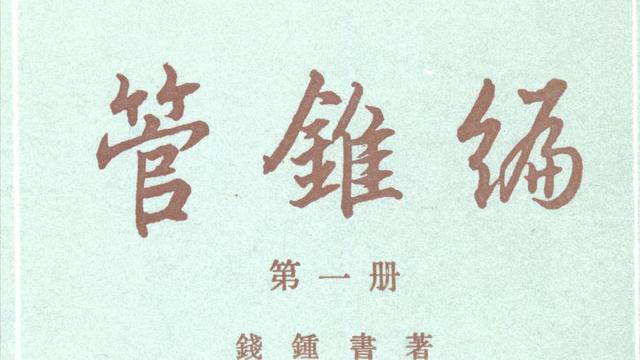 管錐編
第一册
錢鍾書著